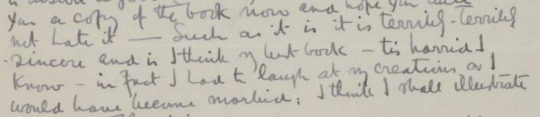 you a copy of the book now and hope you will
not hate it — Such as it is it is terribly - terribly
sincere and is I think my best book — tis horrid I
know — in fact I had to laugh at my creations or I
would have become morbid: I think I shall illustrate